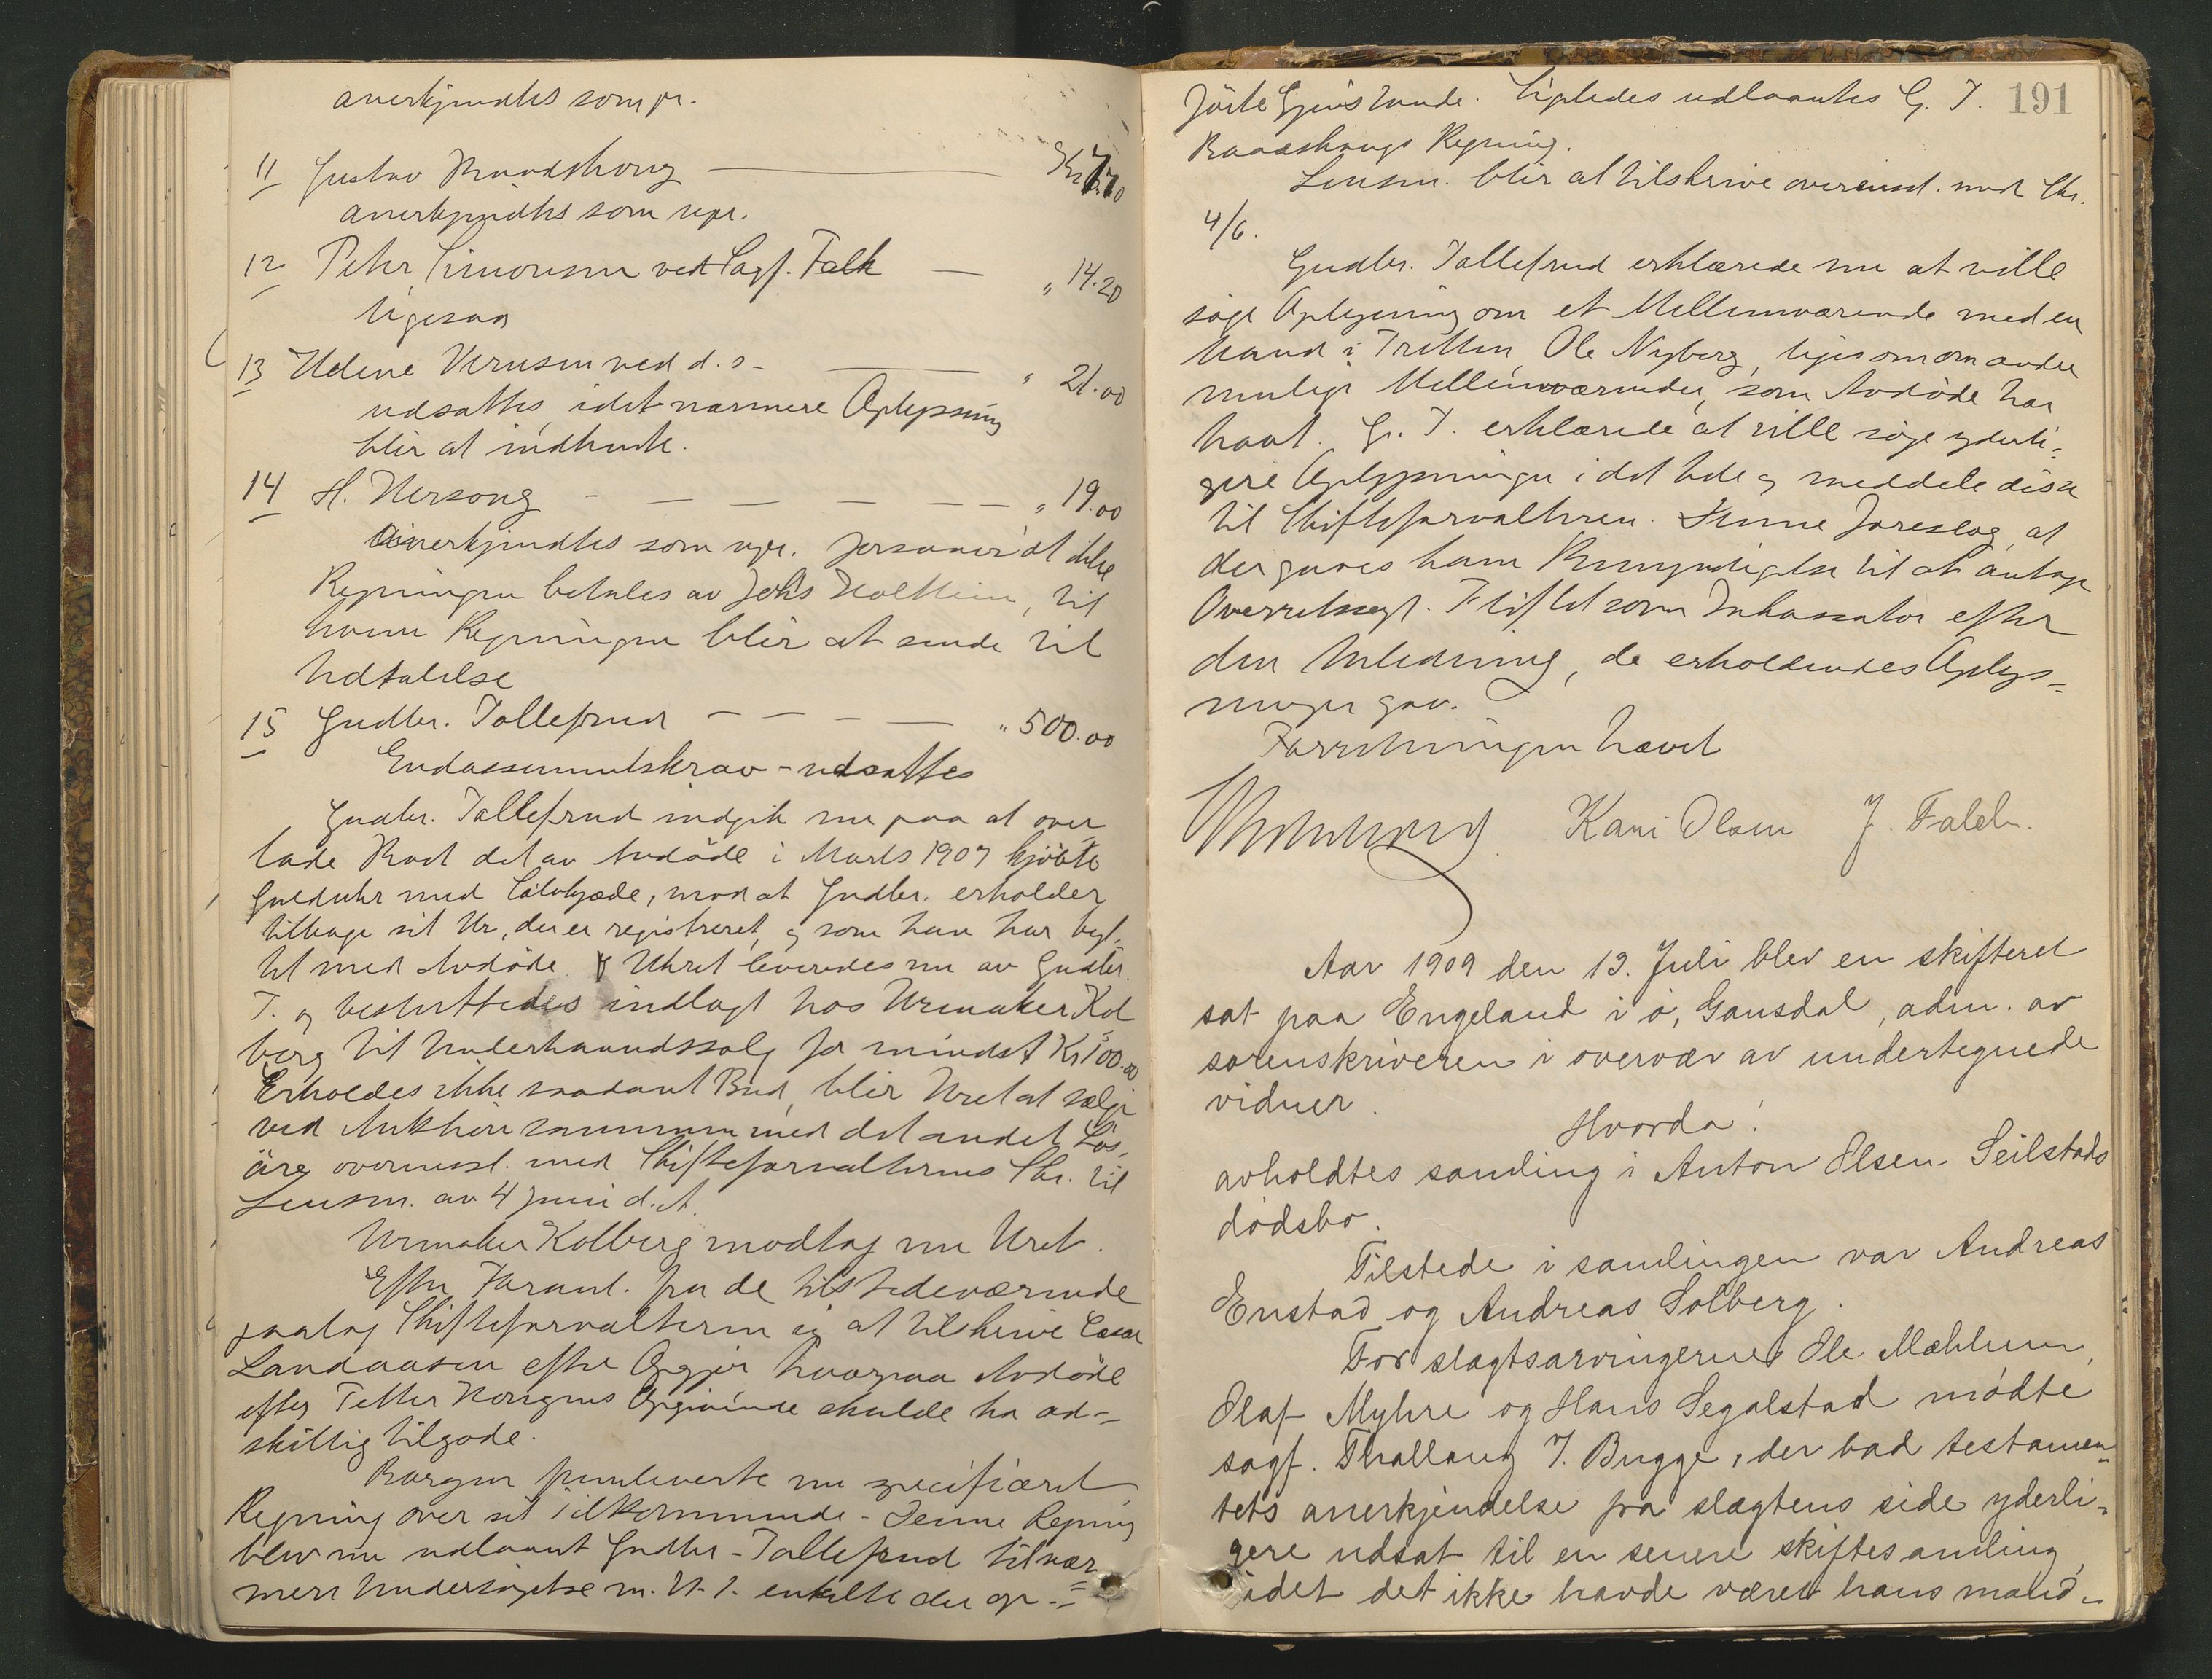 anerkjendtes som pr.
11 Gustav Kr 7.70
anerkjendtes som upr.
12 Peter Simonsen ved Sagf. Falk — „ 14.20
ligesaa
13 ved d.s. — „ 21.00
udsattes, idet nærmere Oplysning
blir at indhente.
14 H. — „ 19.00
anerkjendtes som upr. forsaavidt ikke
Regningen betales av Johs Holthein, til
hvem Regningen blir at sende til
Udtalelse
15 Gudbr. Tollefsrud — „ 500.00
Endossementskrav - udsattes
Gudbr. Tollefsrud indgik nu paa at over
lade det av Avdöde i Marts 1909 kjöbte
Gulduhr med mod at Gudbr. erholder
tilbage sit Ur, der er registreret, og som han har byt-
tet med Avdöde. Uhret leveredes nu av Gudbr.
T. og besluttedes indlagt hos Urmaker Kol
berg til Underhaandssalg for mindst Kr 100.00
Erholdes ikke saadant Bud, blir Uret at sælge
ved Auktion sammen med det andet Lös-
öre overensst. med Skifteforvalterens Skr. til
Lensm. av 4 Juni d.A.
Urmaker Kolberg modtog nu Uret.
Efter Foranl. fra de tilstedeværende
paatog Skifteforvalteren sig at tilskrive
Landaasen efter Opgjör hvorpaa Avdöde
efter Petter Opgivende skulde ha ad-
skillig tilgode.
fremleverte nu specificeret
Regning over sit Tilkommende - Denne Regning
blev nu udlaant Gudbr. Tollefsrud til nær
mere Undersögelse m. H. t. enkelte der op-
191
förte Gjenstande. Ligeledes udlaantes G. T.
Regning.
Lensm. blir at tilskrive overensst. med Skr.
4/6.
Gudbr. Tollefsrud erklærede nu at ville
söge Oplysning om et Mellemværende med en
Mand i Tretten, Ole Nyborg, ligesom om andre
mulige Mellemværender, som Avdöde har
havt. G. T. erklærede at ville söge yderli-
gere Oplysninger i det hele og meddele disse
til Skifteforvalteren. Denne foreslog, at
der gaves ham Bemyndigelse til at antage
Overretssagf. som Inkassator efter
den Anledning, de erholdendes Oplys-
ninger gav.
Forretningen hævet
Kari Olsen J. Falck.
Aar 1909 den 13. Juli blev en skifteret
sat paa Engeland i ö, Gausdal, adm. av
sorenskriveren i overvær av undertegnede
vidner.
Hvorda!
avholdtes samling i Anton Olsen Seilstads
dödsbo.
Tilstede i samlingen var Andreas
Enstad og Andreas Solberg.
For slagtsarvingerne Ole Mæhlum,
Olaf Myhre og Hans Segalstad mödte
sagf. Thallaug J. Bugge, der bad testamen-
tets anerkjendelse fra slægtens side yderli-
gere udsat til en senere skiftesamling,
idet det ikke havde været hans mand-